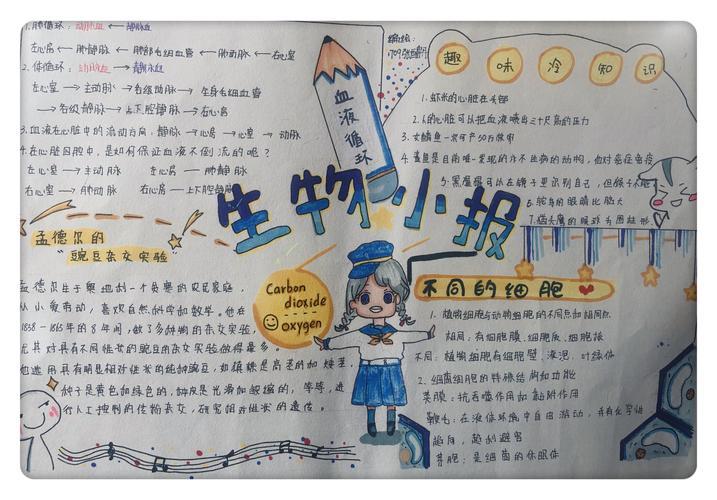 1.肺循环：动脉血 ← 静脉血
左心房 ← 肺静脉 ← 肺部毛细血管 ← 肺动脉 ← 右心室
2.体循环：动脉血 → 静脉血
左心室 → 主动脉 → 各级动脉 → 全身毛细血管
→ 各级静脉 → 上下腔静脉 → 右心房
3.血液在心脏中的流动方向：静脉 → 心房 → 心室 → 动脉
4.在心脏四腔中，是如何保证血液不倒流的呢？
左心室 — 主动脉 左心房 — 肺静脉
右心室 — 肺动脉 右心房 — 上下腔静脉
血液循环
709
趣味冷知识
1.虾米的心脏在头部
2.人的心脏可以把血液喷出三十尺高的压力
3.
4.鲨鱼是目前唯一发现的不生病的动物，他对癌症免疫
5.黑猩猩可以在镜子里识别自己，但猴子不能
6.鸵鸟的眼睛比脑大
7.猫头鹰的眼球为圆柱形
生物小报
孟德尔的
“豌豆杂交实验”
孟德尔生于奥地利一个贫寒的农民家庭，
从小爱劳动，喜欢自然科学和数学。他在
1858-1865年的8年间，做了多种植物的杂交实验，
尤其对具有不同性状的豌豆的杂交实验做得最多。
他选用具有明显相对性状的纯种豌豆，如植株是高茎的和矮茎，
种子是黄色和绿色的，种皮是光滑和皱缩的，等等，进
行人工控制的传粉杂交，研究相对性状的遗传。
Carbon
dioxide
oxygen
不同的细胞
1.植物细胞与动物细胞的不同点和相同点
相同：有细胞膜、细胞质、细胞核
不同：植物细胞有细胞壁、液泡、叶绿体
2.细菌细胞的特殊结构和功能
荚膜：抗吞噬作用和黏附作用
鞭毛：在液体环境中自由游动，
芽孢：是细菌的休眠体